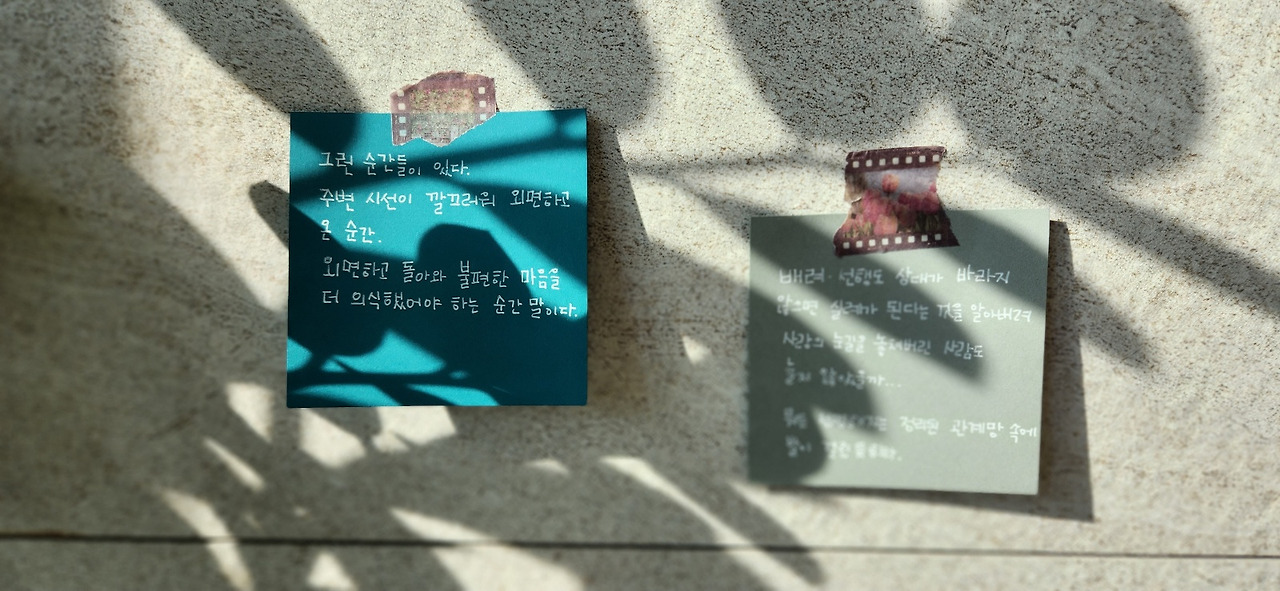 그런 순간들이 있다.
주변 시선이 껄끄러워 외면하고
온 순간.
외면하고 돌아와 불편한 마음을
더 의식했어야 하는 순간 말이다.
배려·선행도 상대가 바라지
않으면 실례가 된다는 것을 알아버려
사람의 눈길을 놓쳐버린 사람도
늘지 않았을까...
관계망 속에